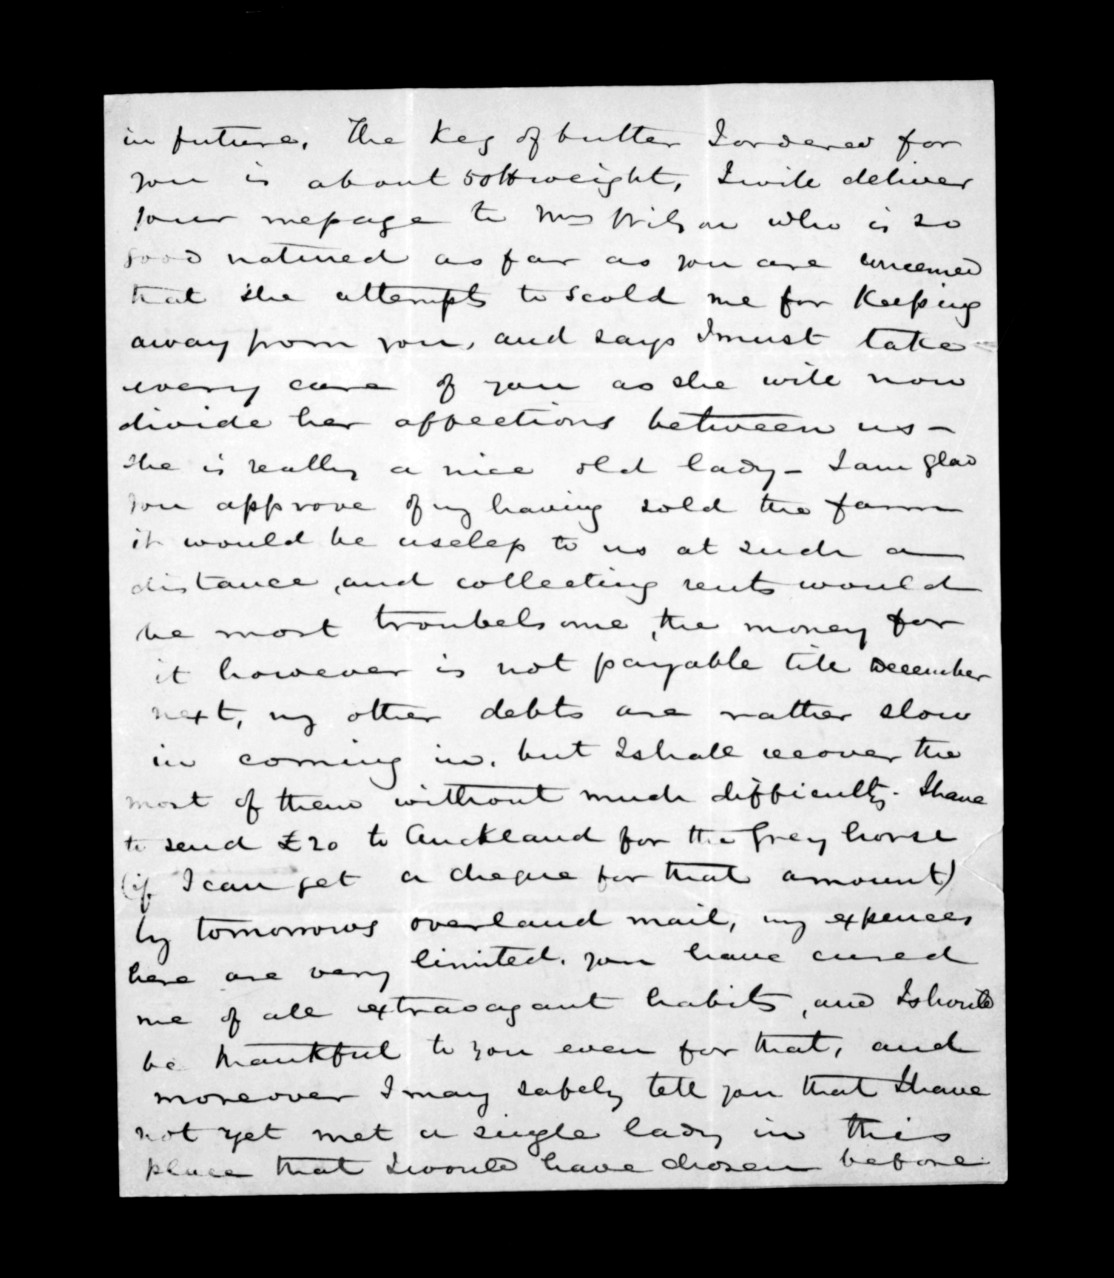 in future. The Keg of butter I ordered for
you is about 50 lb weight, I will deliver
your message to Mrs Wilson who is so
good natured as far as you are concerned
that she attempts to scold me for Keeping
away from you, and says I must take
every care of you as she will now
divide her affections between us -
she is really a nice old lady - I am glad
you approve of my having sold the farm
it would be useless to us at such a
distance, and collecting rents would
be most troubelsome, the money for
it however is not payable till December
next, my other debts are rather slow
in coming in. but I shall recover the
most of them without much difficulty. I have
to send £20 to Auckland for the Grey horse
(if I can get a cheque for that amount)
by tomorrows overland mail, my expences
here are very limited. you have cured
me of all extravagant habits, and I should
be thankful to you even for that, and
moreover I may safely tell you that I have
not yet met a single lady in this
place that I would have chosen before